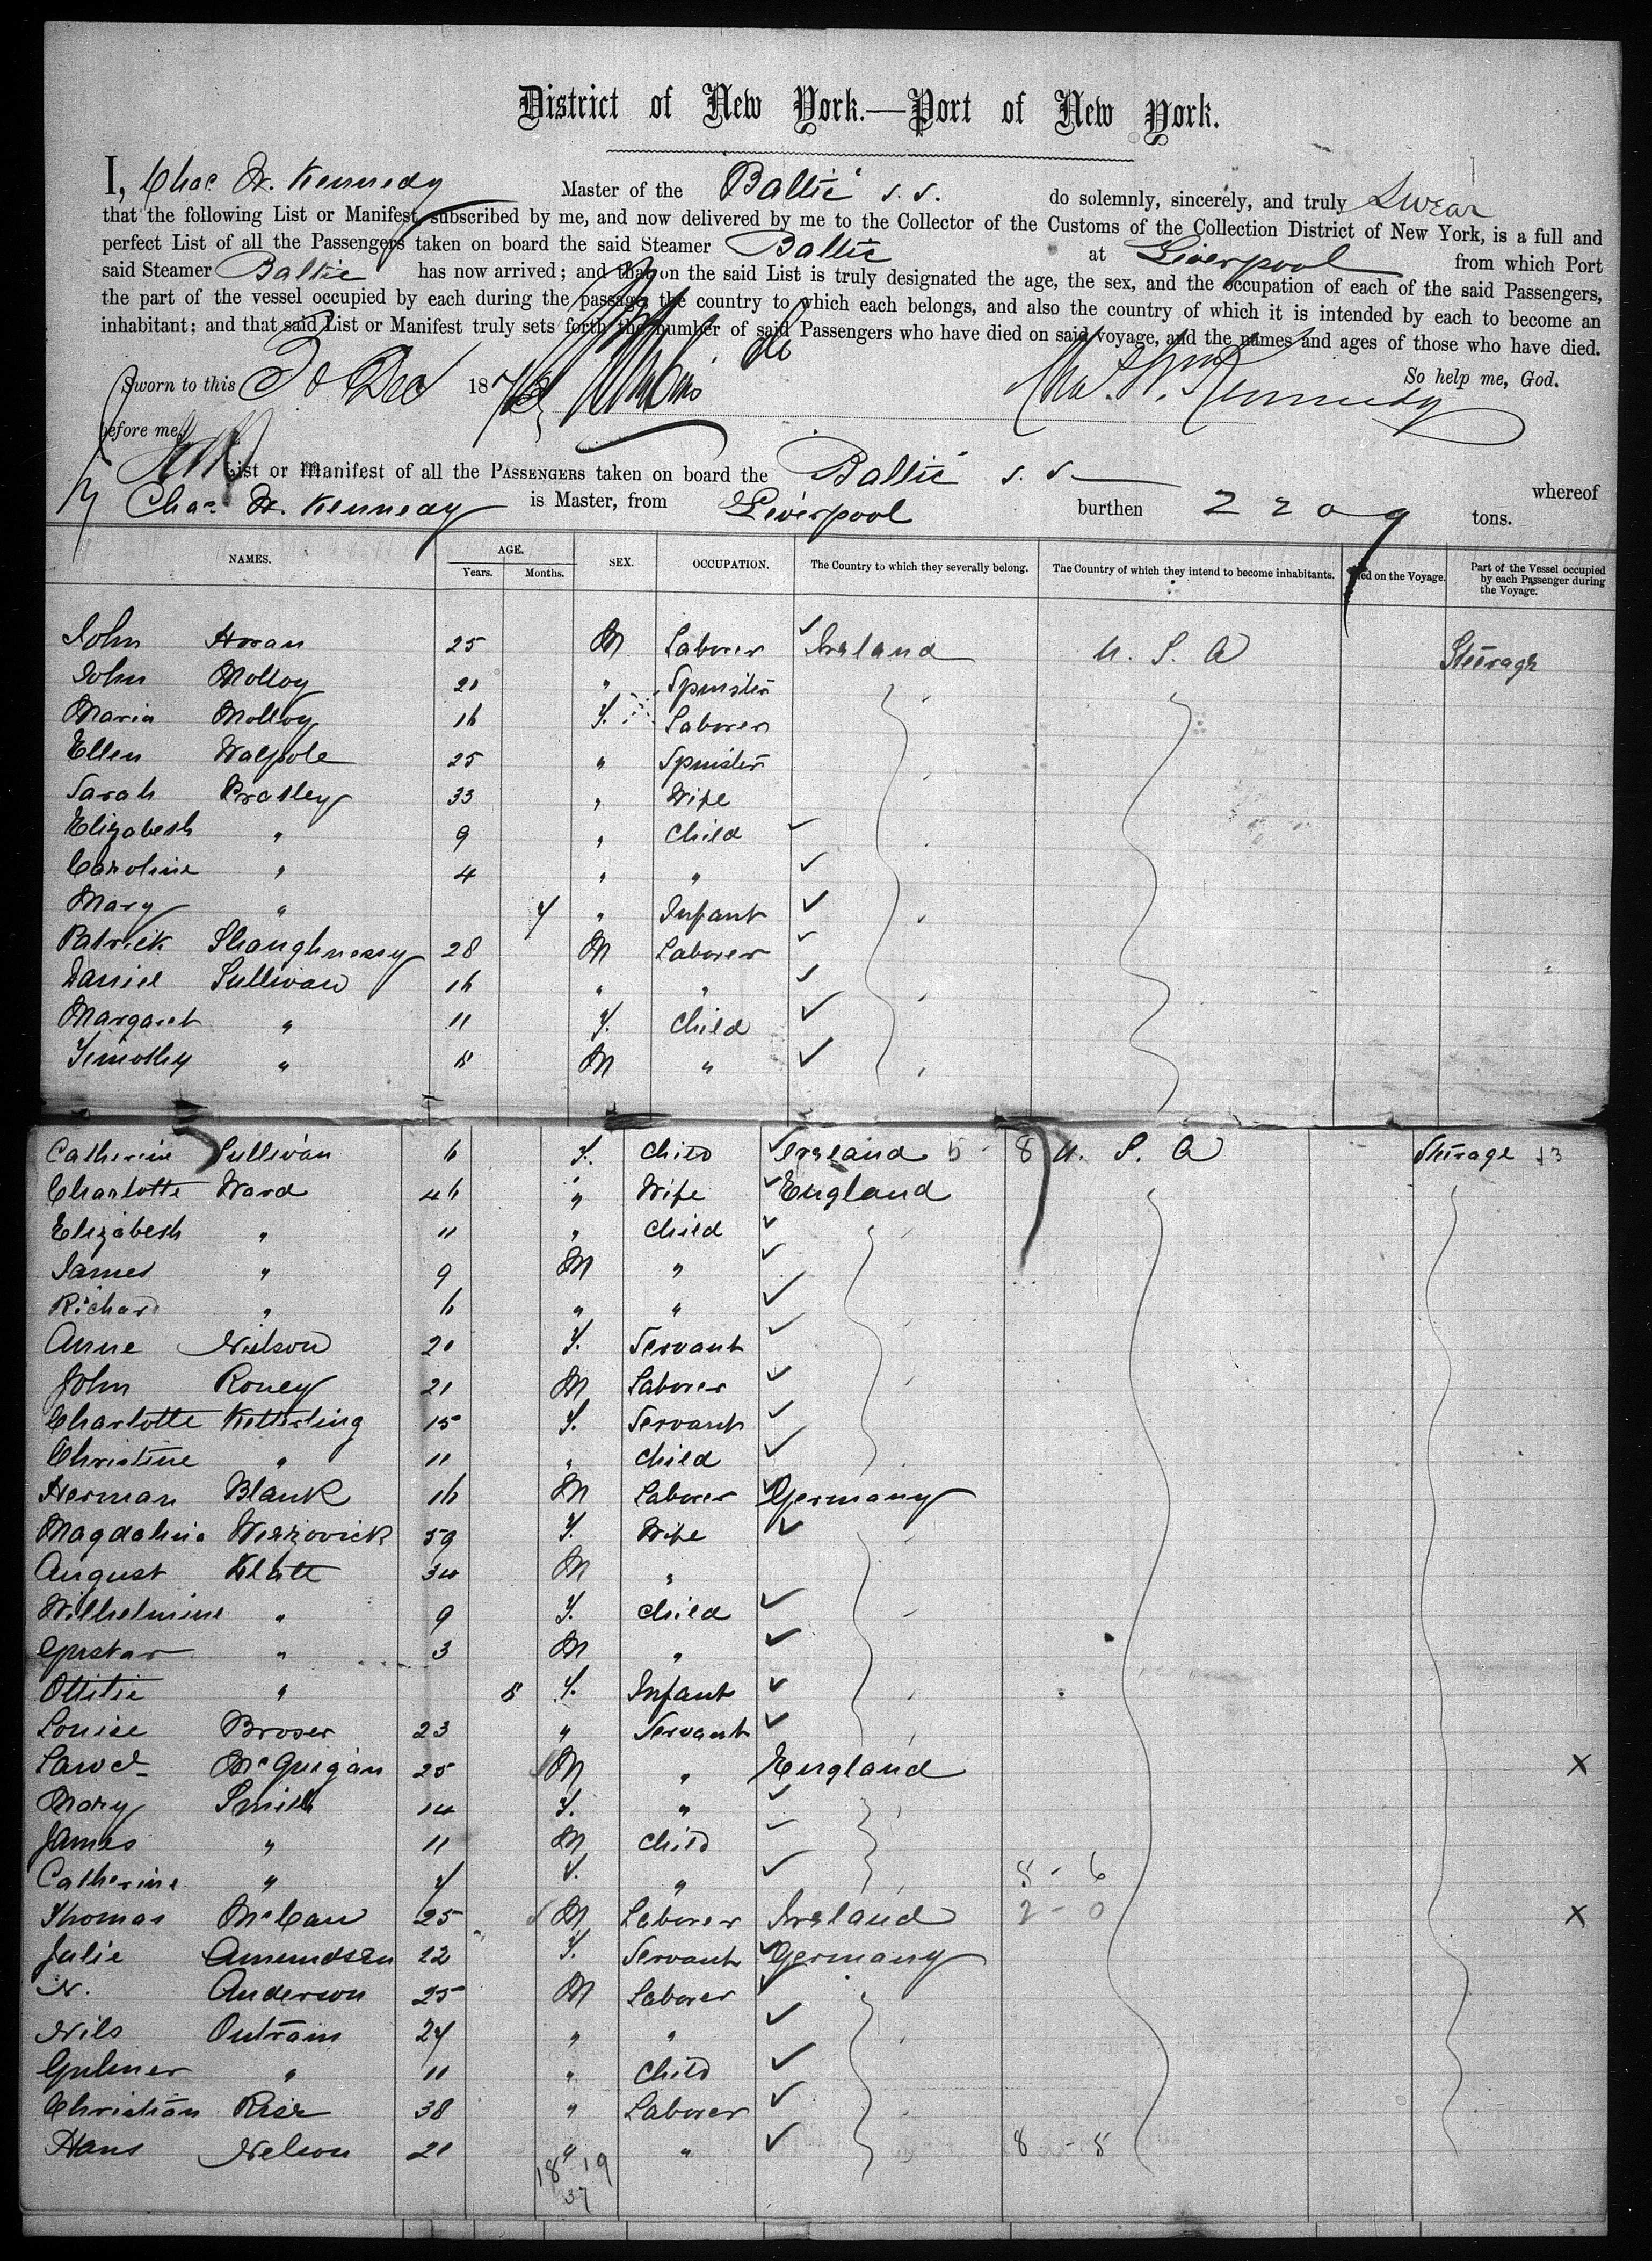 District of New York.—Port of New York.
I, Chas W. Kennedy Master of the Baltic s.s. do solemnly, sincerely, and truly Swear
that the following List or Manifest, subscribed by me, and now delivered by me to the Collector of the Customs of the Collection District of New York, is a full and
perfect List of all the Passengers taken on board the said Steamer Baltic at Liverpool from which Port
said Steamer Baltic has now arrived; and that on the said List is truly designated the age, the sex, and the occupation of each of the said Passengers,
the part of the vessel occupied by each during the passage, the country to which each belongs, and also the country of which it is intended by each to become an
inhabitant; and that said List or Manifest truly sets forth the number of said Passengers who have died on said voyage, and the names and ages of those who have died.
So help me, God.
Sworn to this Dec 187 Chas. W. Kennedy
before me,
List or Manifest of all the PASSENGERS taken on board the Baltic s.s. whereof
Chas. W. Kennedy is Master, from Liverpool burthen 2209 tons.
NAMES. AGE. Years. Months. SEX. OCCUPATION. The Country to which they severally belong. The Country of which they intend to become inhabitants. Died on the Voyage. Part of the Vessel occupied by each Passenger during the Voyage.
John Horan 25 M Laborer Ireland U. S. A Steerage
John Molloy 21 " Spinster
Maria Molloy 16 F. Laborer
Ellen Walpole 25 " Spinster
Sarah Bratley 33 " Wife
Elizabeth " 9 " Child
Caroline " 4 " "
Mary " 7 " Infant
Patrick Shaughnessy 28 M Laborer
Daniel Sullivan 16 " "
Margaret " 11 F. Child
Timothy " 8 M "
Catherine Sullivan 6 F. Child Ireland 5 - 8 U. S. A Steerage 13
Charlotte Ward 46 " Wife England
Elizabeth " 11 " Child
James " 9 M "
Richard " 6 " "
Anne Nielson 20 F. Servant
John Roney 21 M Laborer
Charlotte Ketterling 15 F. Servant
Christine " 11 " Child
Herman Blank 16 M Laborer Germany
Magdalina Wezzovick 59 F. Wife
August Klatt 34 M "
Wilhelmine " 9 F. Child
Gustav " 3 M "
Ottilie " 8 F. Infant
Louise Broser 23 " Servant
Lawce McGuigan 25 M " England X
Mary Smith 14 F. "
James " 11 M Child
Catherine " 7 F. " 8 - 6
Thomas McCan 25 M Laborer Ireland 2 - 0 X
Julie Amundsen 22 F. Servant Germany
N. Anderson 25 M Laborer
Nils Outram 27 " "
Gulmer " 11 " Child
Christian Rise 38 " Laborer
Hans Nelson 21 " " 8 - 8
18 - 19
37